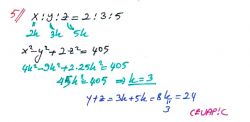 5// x:y:z = 2:3:5
2k 3k 5k
x² y² + 2·z² = 405
4k² - 9k² + 2·25k² = 405
45k² = 405 ⇒ k = 3
y+z = 3k+5k = 8k = 24
3
CEVAP: C